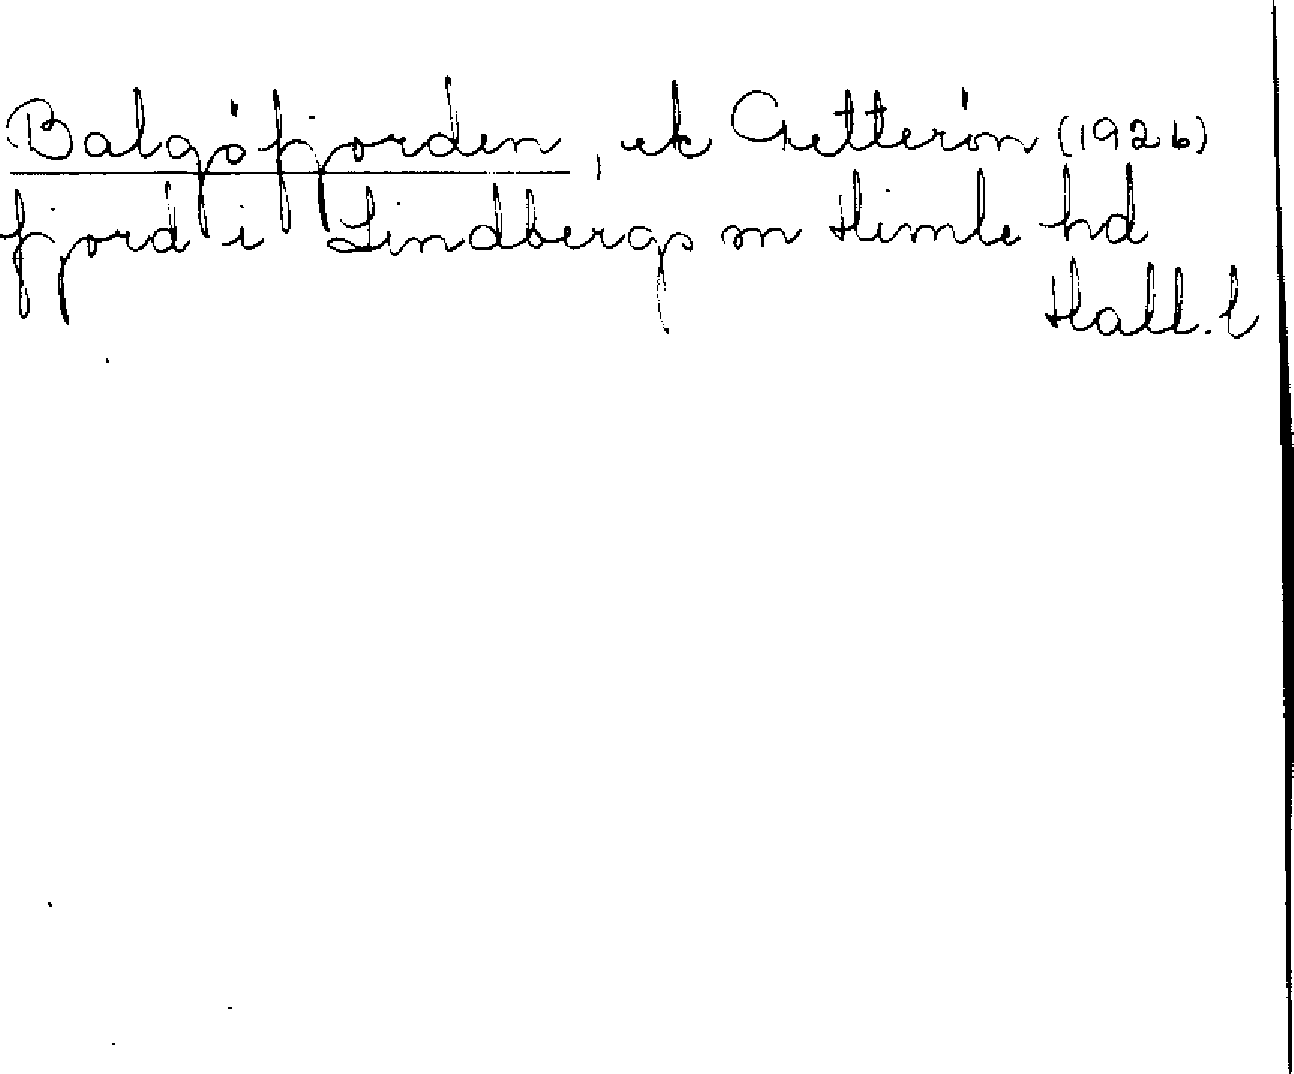 Balgöfjorden, ek Getterön (1926)
fjord i Lindbergs sn Himle hd
Hall. l